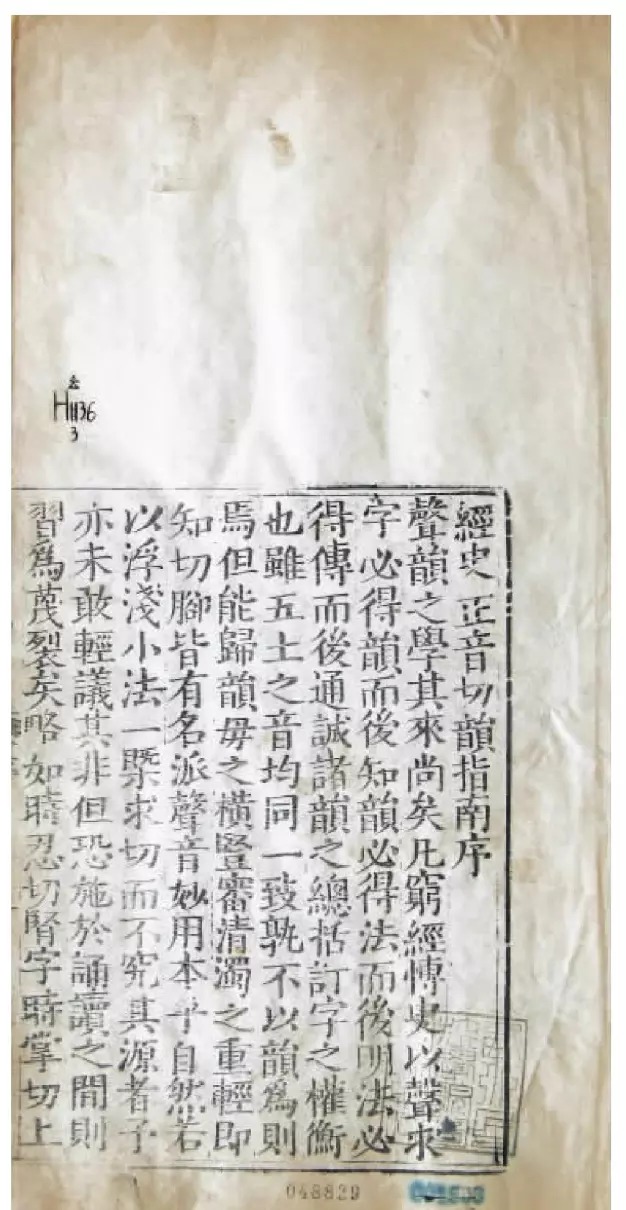 經史正音切韻指南序
聲韻之學其來尚矣凡窮經慱史以聲求
字必得韻而後知韻必得法而後明法必
得傳而後通誠諸韻之總括訂字之權衡
也雖五土之音均同一致孰不以韻為則
焉但能歸韻母之橫豎審清濁之重輕即
知切腳皆有名派聲音妙用本乎自然若
以浮淺小法一槩求切而不究其源者予
亦未敢輕議其非但恐施於誦讀之間則
習為蔑裂矣略如時忍切腎字時掌切上
善
H1136
3
048829